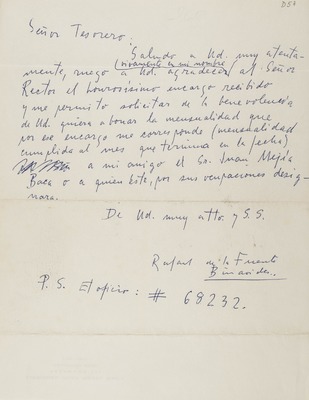 D57
Señor Tesorero:
Saludo a Ud. muy atenta-
mente, ruego a Ud. agradecer (vivamente en mi nombre) al Señor
Rector el honrosísimo encargo recibido
y me permito solicitar de la benevolencia
de Ud. quiera abonar la mensualidad que
por ese encargo me corresponde (mensualidad
cumplida al mes que termina en la fecha)
a mi amigo el Sr. Juan Mejía
Baca o a quien éste, por sus ocupaciones desig-
nara.
De Ud. muy atto. y S. S.
Rafael de la Fuente
Benavides.
P. S. El oficio: # 68232.